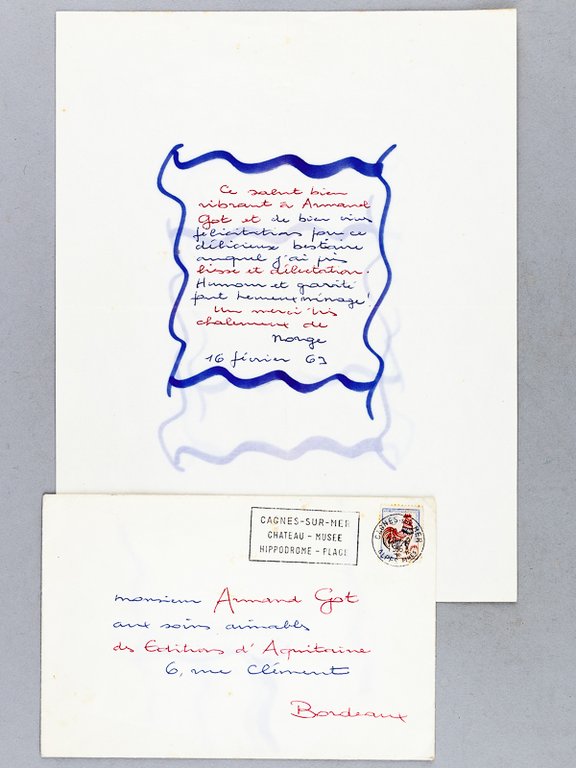 Ce salut bien
vibrant à Armand
Got et de bien vives
félicitations pour ce
délicieux bestiaire
auquel j'ai pris
liesse et délectation.
Humour et gravité
font heureux ménage!
Un merci très
chaleureux de
Norge
16 février 63
CAGNES-SUR-MER
CHATEAU - MUSEE
HIPPODROME - PLAGE
CAGNES-SUR-MER
ALPES MMES
monsieur Armand Got
aux soins aimables
des Editions d'Aquitaine
6, rue Clément
Bordeaux